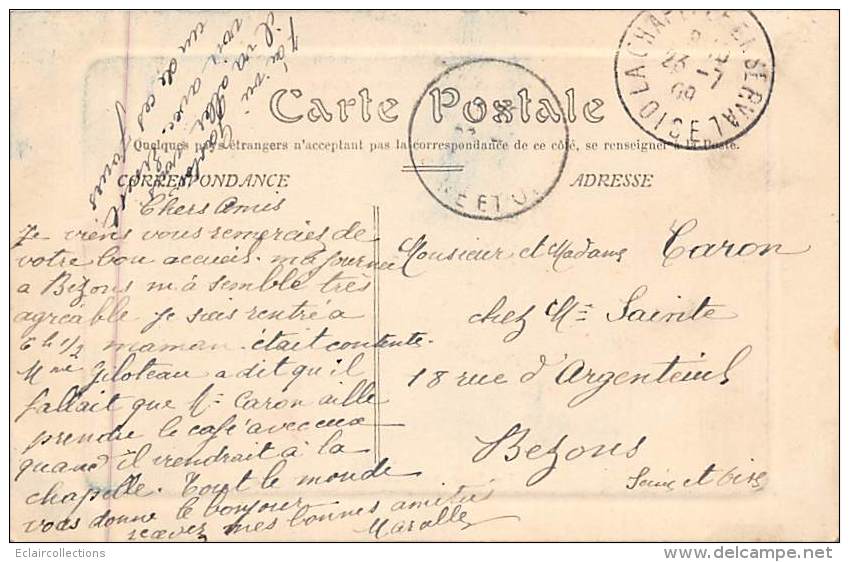 J'ai vu Carlos
il va aller vous
voir avec Zizine
un de ces jours
LA CHAPELLE EN SERVAL OISE
23 -7
09
Carte Postale
Quelques pays étrangers n'acceptant pas la correspondance de ce côté, se renseigner à la Poste.
CORRESPONDANCE
ADRESSE
ET O
Chers amis
Je viens vous remercies de
votre bon accueil. ma journée
a Bezons m'a semblé très
agréable. je suis rentré a
6h 1/2 maman était contente.
Mme Piloteau a dit qu'il
fallait que Mr Caron aille
prendre le café avec eux
quand il viendrait à la
chapelle. Tout le monde
vous donne le bonjour
recevez mes bonnes amitiés
Marcelle
Monsieur et Madame Caron
chez Mr Sainte
18 rue d'Argenteuil
Bezons
Seine et Oise
Eclaircollections
delcampe.net